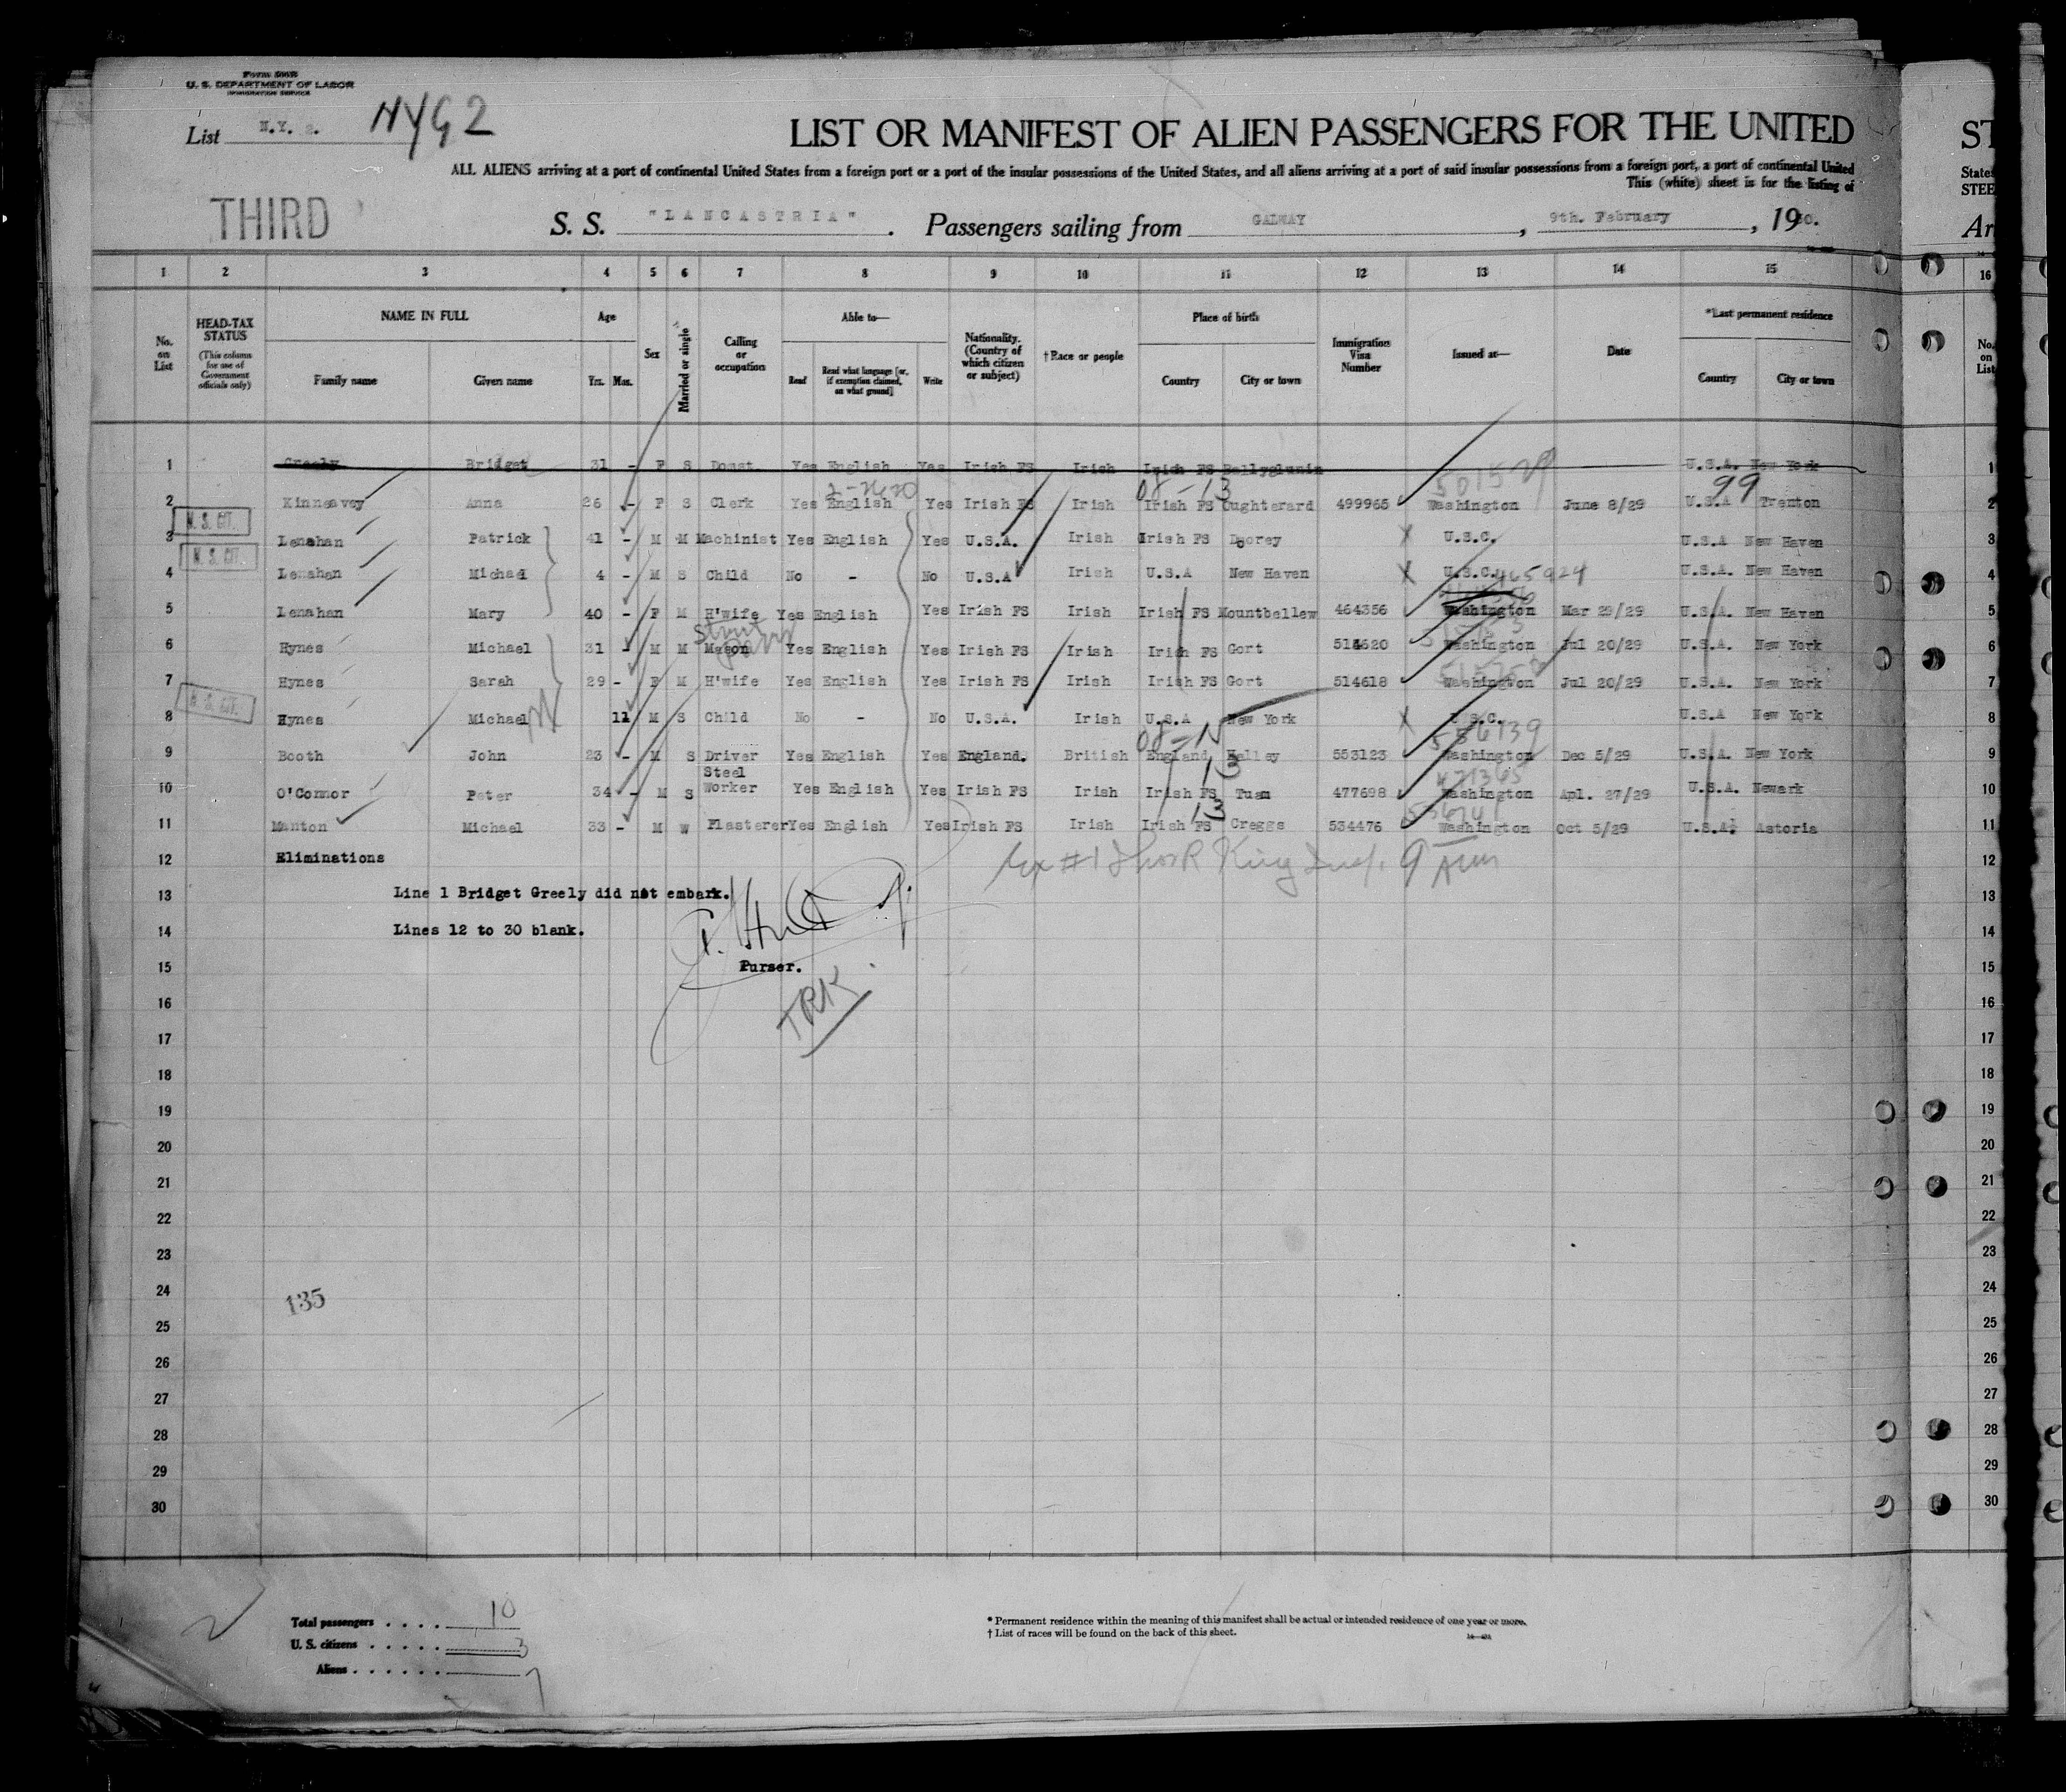 Form 500B
U. S. DEPARTMENT OF LABOR
IMMIGRATION SERVICE
List N.Y. 2. NYG2
LIST OR MANIFEST OF ALIEN PASSENGERS FOR THE UNITED
ALL ALIENS arriving at a port of continental United States from a foreign port or a port of the insular possessions of the United States, and all aliens arriving at a port of said insular possessions from a foreign port, a port of continental United
This (white) sheet is for the listing of
THIRD
S. S. "LANCASTRIA". Passengers sailing from GALWAY, 9th. February, 1930.
1 2 3 4 5 6 7 8 9 10 11 12 13 14 15
No. on List
HEAD-TAX STATUS (This column for use of Government officials only)
NAME IN FULL Family name Given name
Age Yrs. Mos.
Sex
Married or single
Calling or occupation
Able to— Read Read what language [or, if exemption claimed, on what ground] Write
Nationality. (Country of which citizen or subject)
†Race or people
Place of birth Country City or town
Immigration Visa Number
Issued at—
Date
*Last permanent residence Country City or town
1 Greely Bridget 31 - F S Domst. Yes English Yes Irish FS Irish Irish FS Ballyglunin U.S.A. New York
2 Kinneavey Anna 26 - F S Clerk Yes English Yes Irish FS Irish Irish FS Oughterard 499965 Washington June 8/29 U.S.A Trenton 99
3 Lenahan Patrick 41 - M M Machinist Yes English Yes U.S.A. Irish Irish FS Doorey X U.S.C. U.S.A New Haven
4 Lenahan Michael 4 - M S Child No - No U.S.A Irish U.S.A New Haven X U.S.C. 465924 U.S.A. New Haven
5 Lenahan Mary 40 - F M H'wife Yes English Yes Irish FS Irish Irish FS Mountbellew 464356 Washington Mar 29/29 U.S.A. New Haven
6 Hynes Michael 31 M M Mason Yes English Yes Irish FS Irish Irish FS Gort 514620 Washington Jul 20/29 U.S.A. New York
7 Hynes Sarah 29 - F M H'wife Yes English Yes Irish FS Irish Irish FS Gort 514618 Washington Jul 20/29 U.S.A. New York
8 Hynes Michael 11 M S Child No - No U.S.A. Irish U.S.A New York X U.S.C. U.S.A New York
9 Booth John 23 - M S Driver Yes English Yes England. British England 553123 Washington Dec 5/29 U.S.A. New York
10 O'Connor Peter 34 - M S Steel Worker Yes English Yes Irish FS Irish Irish FS Tuam 477698 Washington Apl. 27/29 U.S.A. Newark
11 Manton Michael 33 - M W Plasterer Yes English Yes Irish FS Irish Irish FS Creggs 534476 Washington Oct 5/29 U.S.A. Astoria
12 Eliminations
13 Line 1 Bridget Greely did not embark.
14 Lines 12 to 30 blank.
15 Purser.
16 TRK
17
18
19
20
21
22
23
24 135
25
26
27
28
29
30
Total passengers . . . . 10
U. S. citizens . . . . . 3
Aliens . . . . . . 7
* Permanent residence within the meaning of this manifest shall be actual or intended residence of one year or more.
† List of races will be found on the back of this sheet.
ST
States
STEE
Ar
16
No. on List
1
2
3
4
5
6
7
8
9
10
11
12
13
14
15
16
17
18
19
20
21
22
23
24
25
26
27
28
29
30